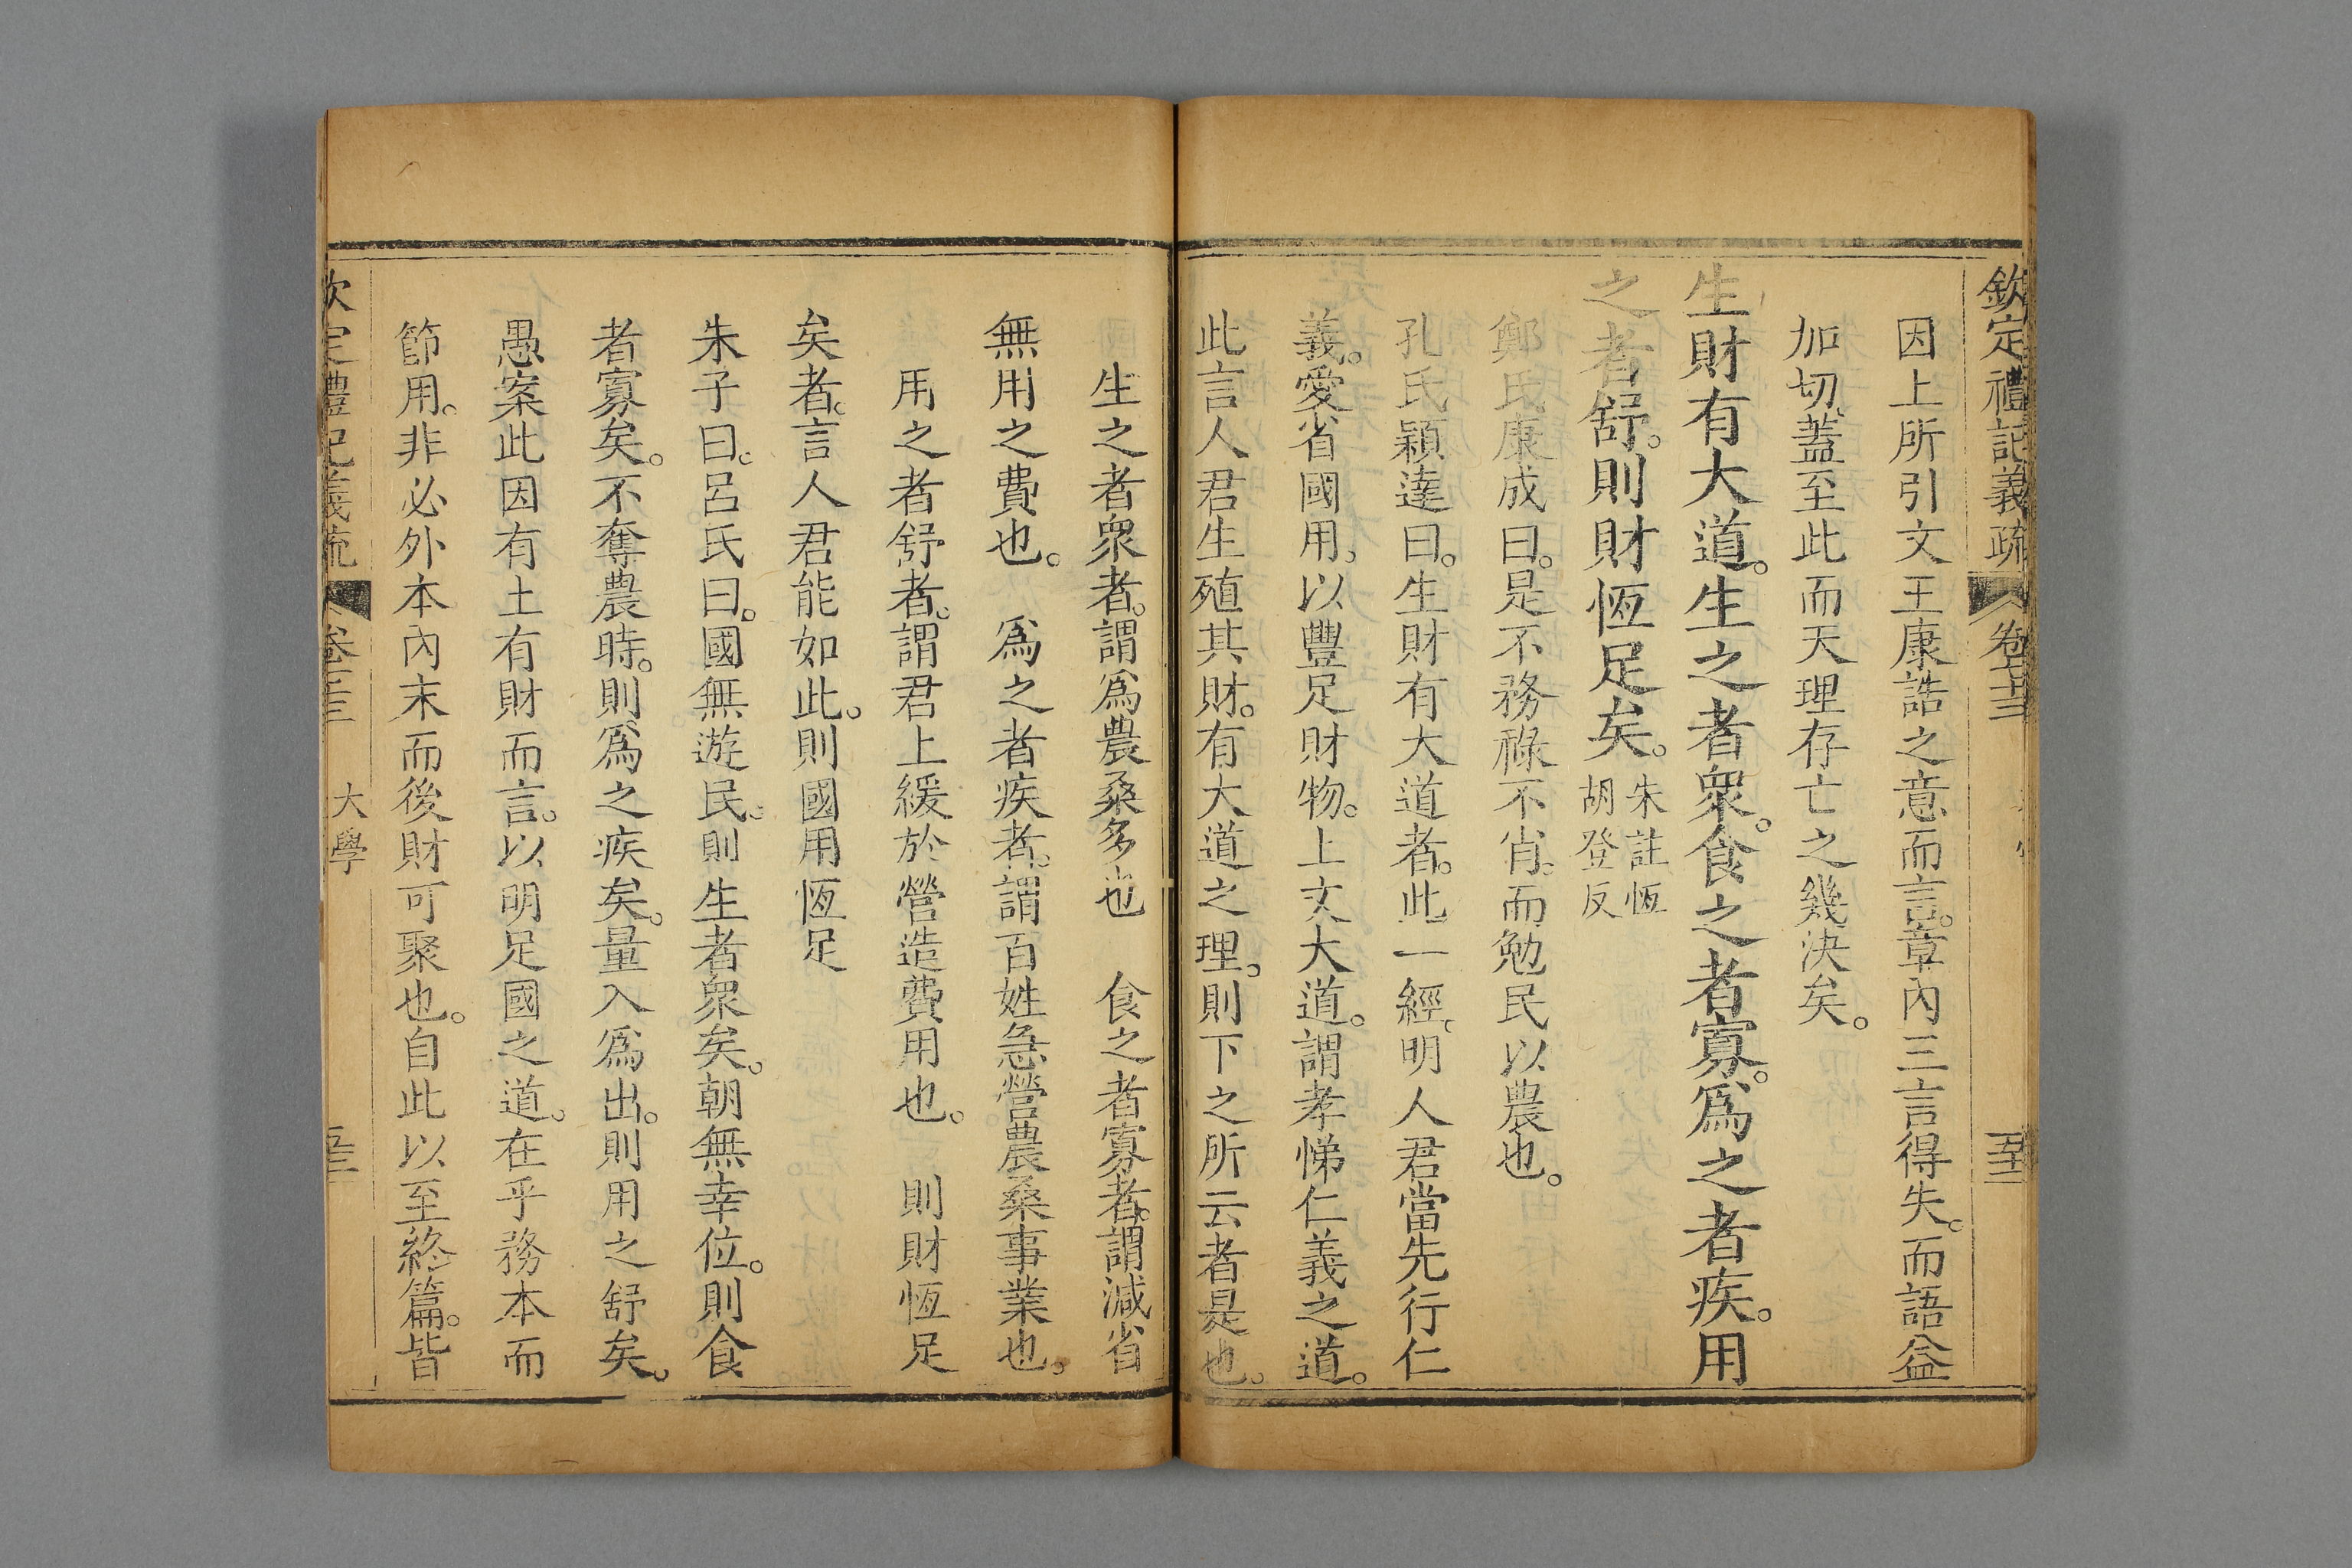 欽定禮記義疏 卷七十三
因上所引文王康誥之意而言。章內三言得失。而語益
加切。蓋至此而天理存亡之幾決矣。
生財有大道。生之者衆。食之者寡。爲之者疾。用
之者舒。則財恆足矣。朱註恆
胡登反
鄭氏康成曰。是不務祿不肖。而勉民以農也。
孔氏穎達曰。生財有大道者。此一經。明人君當先行仁
義。愛省國用。以豐足財物。上文大道。謂孝悌仁義之道。
此言人君生殖其財。有大道之理。則下之所云者是也。
生之者衆者。謂爲農桑多也 食之者寡者。謂減省
無用之費也。 爲之者疾者。謂百姓急營農桑事業也。
用之者舒者。謂君上緩於營造費用也。 則財恆足
矣者。言人君能如此。則國用恆足
朱子曰。呂氏曰。國無遊民。則生者衆矣。朝無幸位。則食
者寡矣。不奪農時。則爲之疾矣。量入爲出。則用之舒矣。
愚案此因有土有財而言。以明足國之道。在乎務本而
節用。非必外本內末而後財可聚也。自此以至終篇。皆
欽定禮記義疏 大學